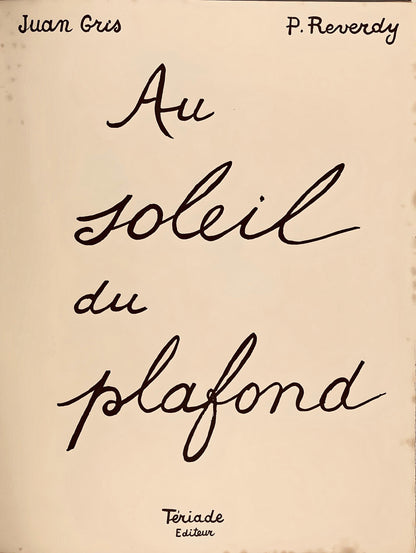 Juan Gris P. Reverdy
Au
soleil
du
plafond
Tériade
Editeur